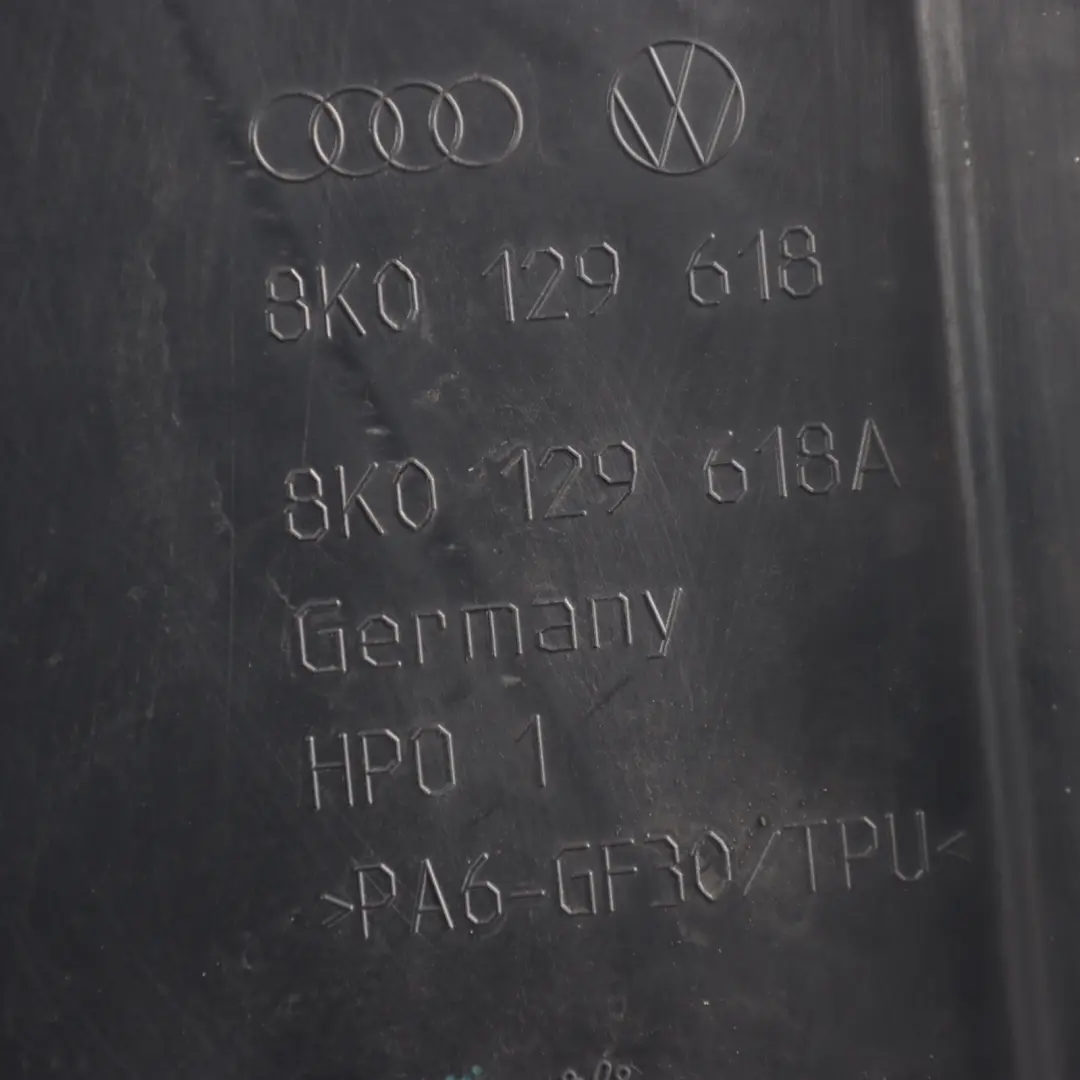 8K0 129 618
8K0 129 618A
Germany
HPO 1
>PA6-GF30/TPU<